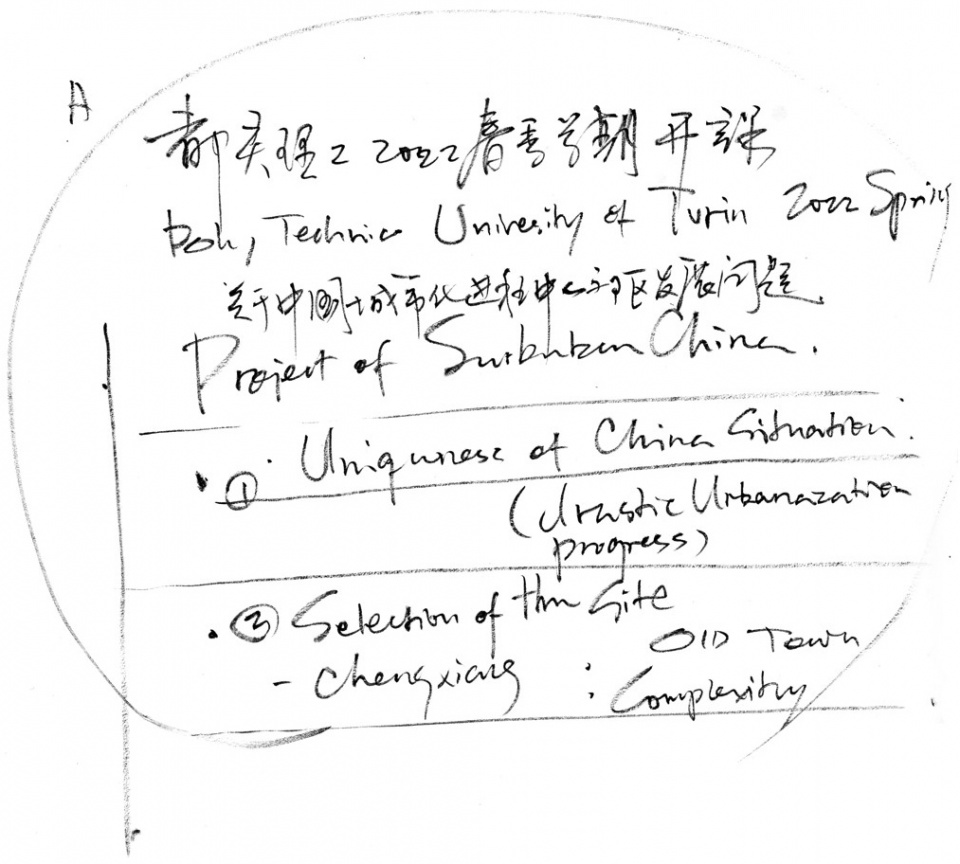 A
都灵理工2022春季学期开课
Technic University of Turin 2022 Spring
关于中国城市化进程中心郊区发展问题.
Project of Surburban China.
① Uniquness of China Situation.
(drastic Urbanazation
progress)
③ Selection of the Site
OlD Town
- Chengxiang : Complexity